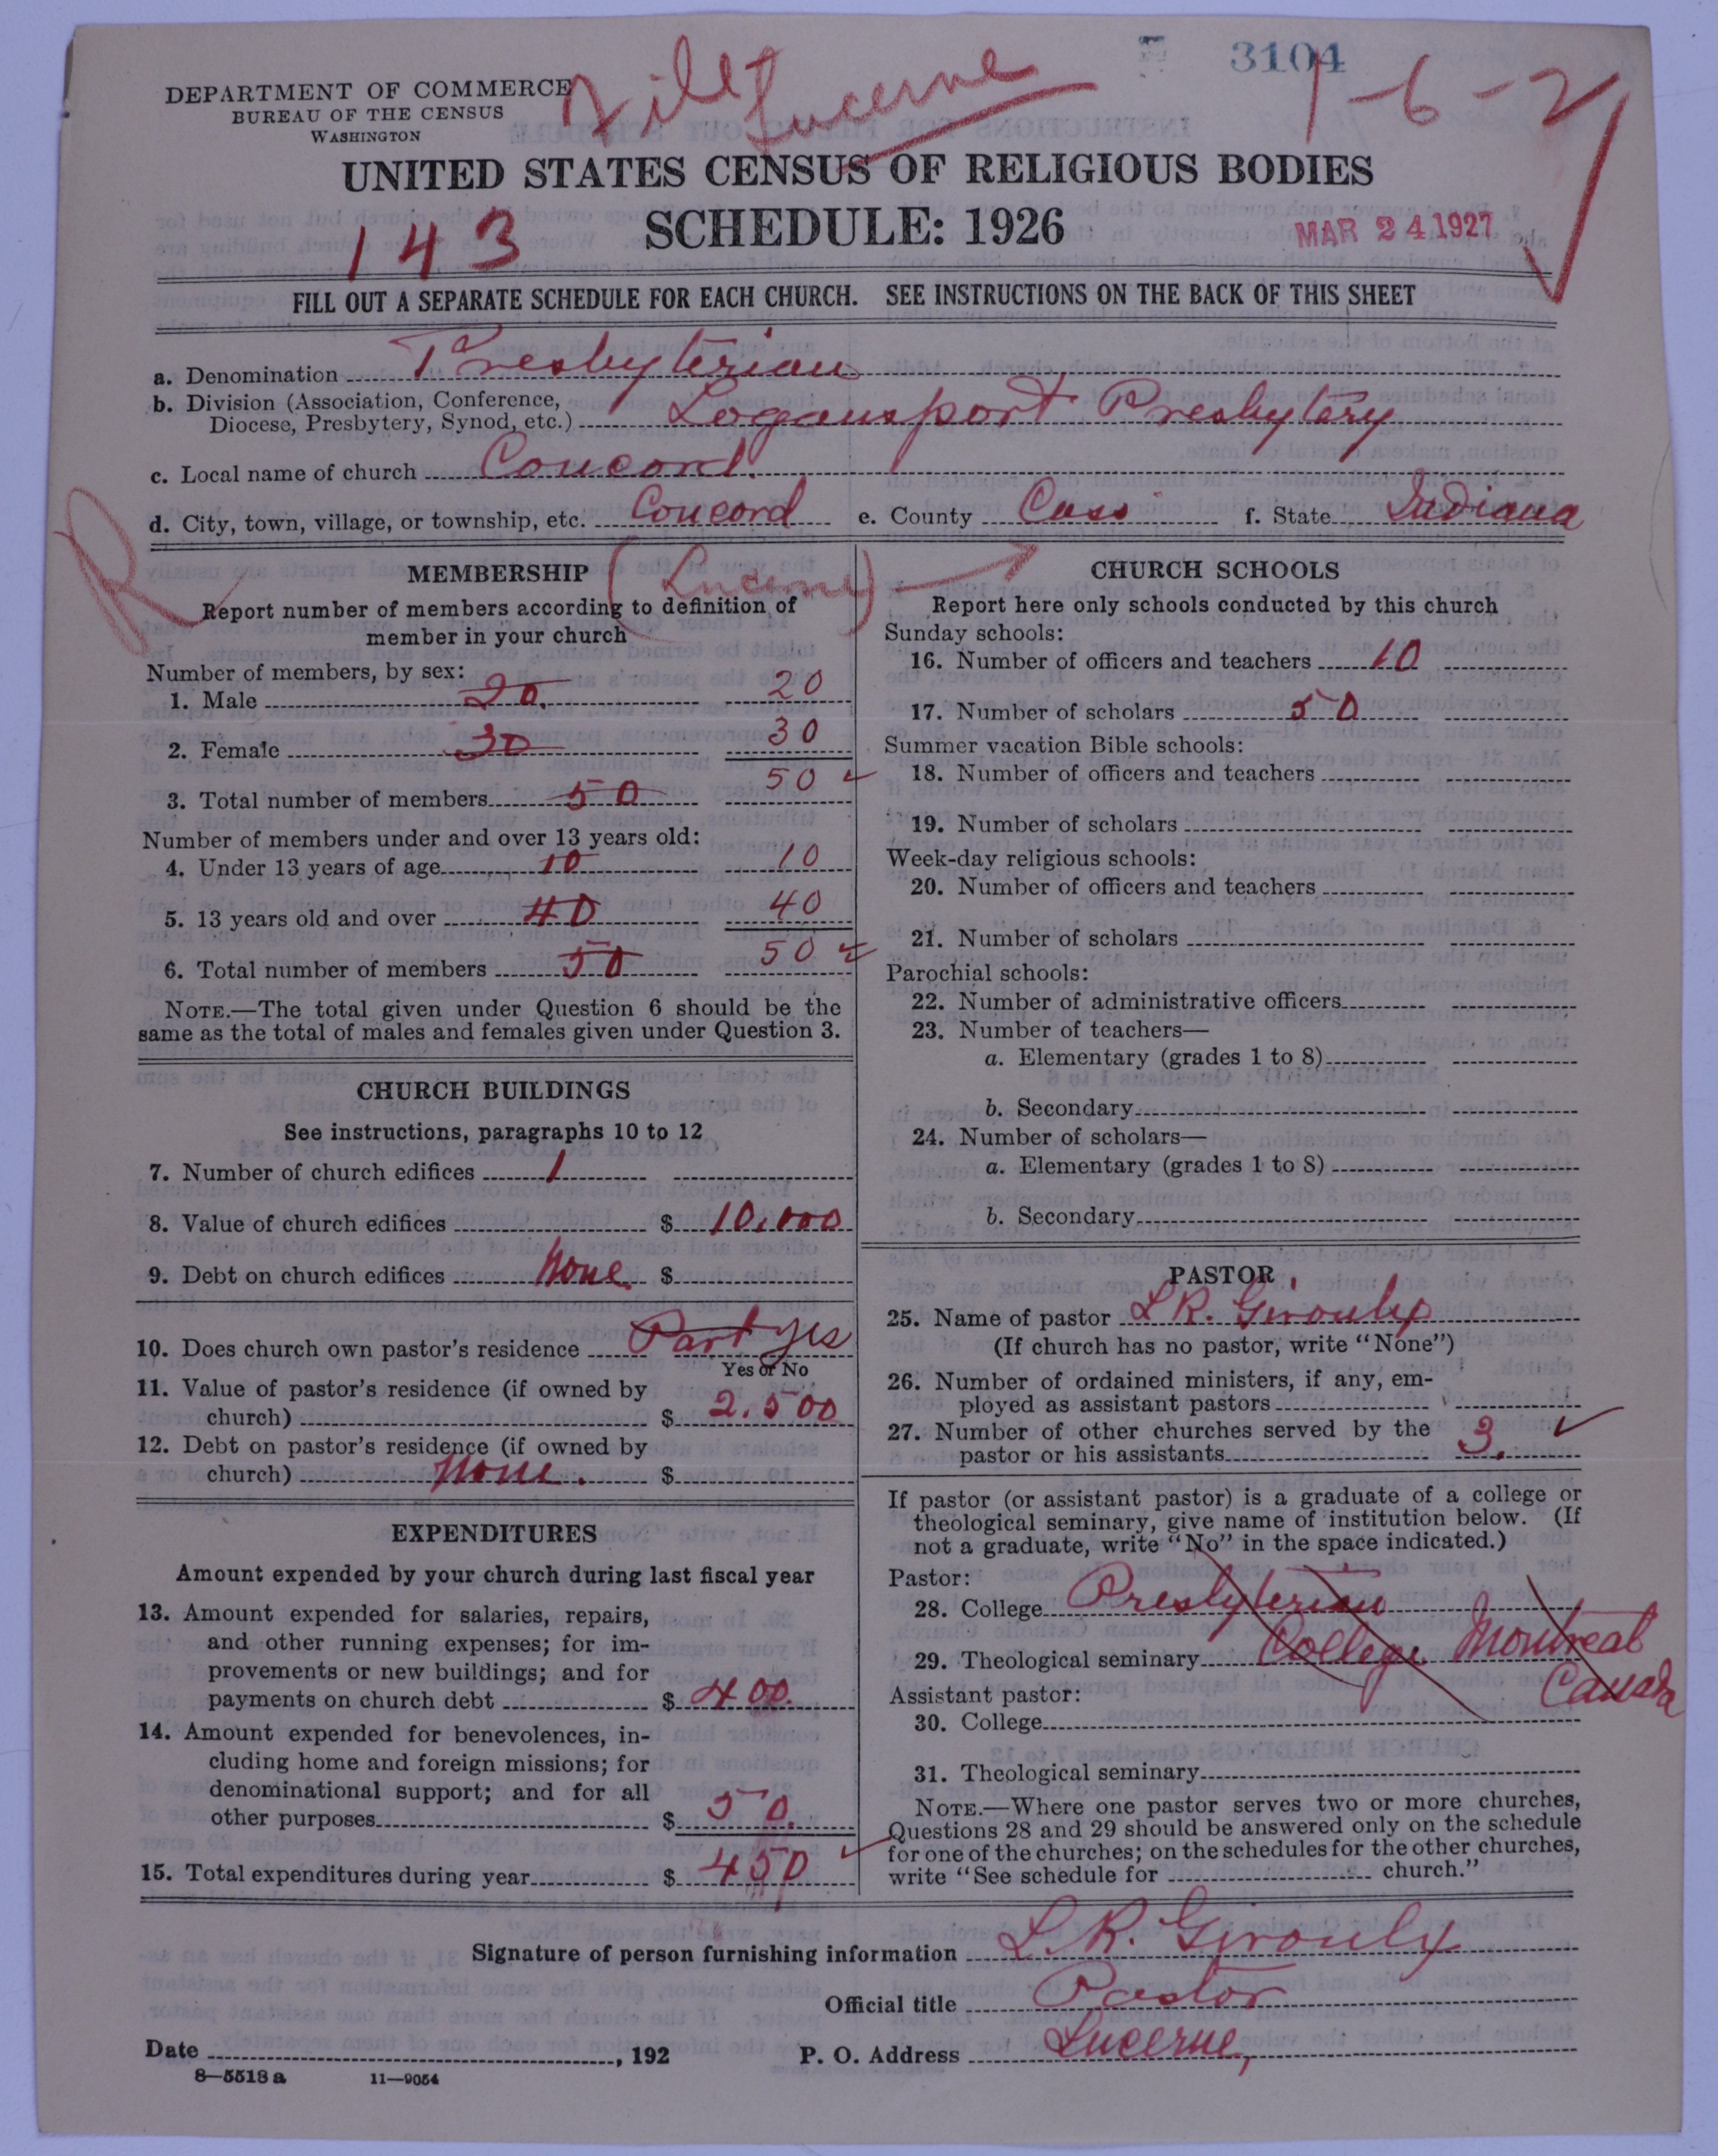 3104
DEPARTMENT OF COMMERCE
BUREAU OF THE CENSUS
WASHINGTON
Lucerne
1-6-2
UNITED STATES CENSUS OF RELIGIOUS BODIES
143 SCHEDULE: 1926 MAR 24 1927
FILL OUT A SEPARATE SCHEDULE FOR EACH CHURCH. SEE INSTRUCTIONS ON THE BACK OF THIS SHEET
a. Denomination Presbyterian
b. Division (Association, Conference,
Diocese, Presbytery, Synod, etc.) Logansport Presbytery
c. Local name of church Concord.
d. City, town, village, or township, etc. Concord e. County Cass f. State Indiana
R
(Lucerne)
MEMBERSHIP
Report number of members according to definition of
member in your church
Number of members, by sex:
1. Male 20. 20
2. Female 30 30
3. Total number of members 50 50
Number of members under and over 13 years old:
4. Under 13 years of age 10 10
5. 13 years old and over 40 40
6. Total number of members 50 50
NOTE.—The total given under Question 6 should be the
same as the total of males and females given under Question 3.
CHURCH BUILDINGS
See instructions, paragraphs 10 to 12
7. Number of church edifices 1
8. Value of church edifices $ 10,000
9. Debt on church edifices None $
10. Does church own pastor's residence Part yes
Yes or No
11. Value of pastor's residence (if owned by
church) $ 2.500
12. Debt on pastor's residence (if owned by
church) None. $
EXPENDITURES
Amount expended by your church during last fiscal year
13. Amount expended for salaries, repairs,
and other running expenses; for im-
provements or new buildings; and for
payments on church debt $ 400.
14. Amount expended for benevolences, in-
cluding home and foreign missions; for
denominational support; and for all
other purposes $ 50.
15. Total expenditures during year $ 450
CHURCH SCHOOLS
Report here only schools conducted by this church
Sunday schools:
16. Number of officers and teachers 10
17. Number of scholars 50
Summer vacation Bible schools:
18. Number of officers and teachers
19. Number of scholars
Week-day religious schools:
20. Number of officers and teachers
21. Number of scholars
Parochial schools:
22. Number of administrative officers
23. Number of teachers—
a. Elementary (grades 1 to 8)
b. Secondary
24. Number of scholars—
a. Elementary (grades 1 to 8)
b. Secondary
PASTOR
25. Name of pastor L R.
(If church has no pastor, write "None")
26. Number of ordained ministers, if any, em-
ployed as assistant pastors
27. Number of other churches served by the
pastor or his assistants 3.
If pastor (or assistant pastor) is a graduate of a college or
theological seminary, give name of institution below. (If
not a graduate, write "No" in the space indicated.)
Pastor:
28. College Presbyterian
29. Theological seminary College Montreal
Canada
Assistant pastor:
30. College
31. Theological seminary
NOTE.—Where one pastor serves two or more churches,
Questions 28 and 29 should be answered only on the schedule
for one of the churches; on the schedules for the other churches,
write "See schedule for church."
Signature of person furnishing information L. R.
Official title Pastor
Date , 192 P. O. Address Lucerne,
8—5518 a 11—9054